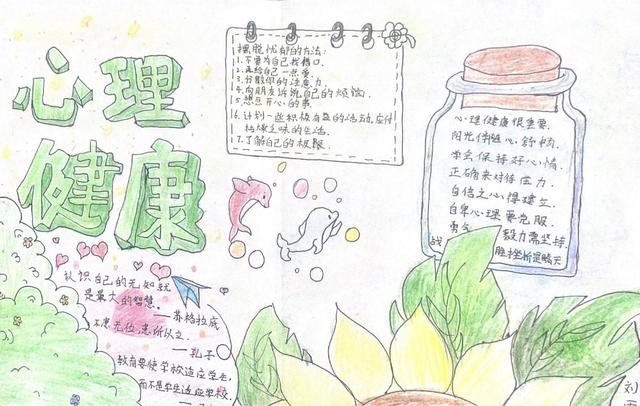 心理
健康
摆脱忧郁的方法:
1.不要为自己找借口.
2.再给自己一点爱.
3.分散你的注意力.
4.向朋友诉说自己的烦恼.
5.想点开心的事.
6.计划一些积极有益的活动,应付
枯燥乏味的生活.
7.了解自己的极限.
心理健康很重要.
阳光伴随心舒畅.
学会保持好心情.
正确来对待压力.
自信之心得建立.
自卑心理要克服.
勇气 毅力需坚持.
战 胜挫折迎晴天
认识自己的无知就
是最大的智慧.
——苏格拉底
不患无位,患所以立.
——孔子
教育要使学校适应学生,
而不是学生适应学校.
刘